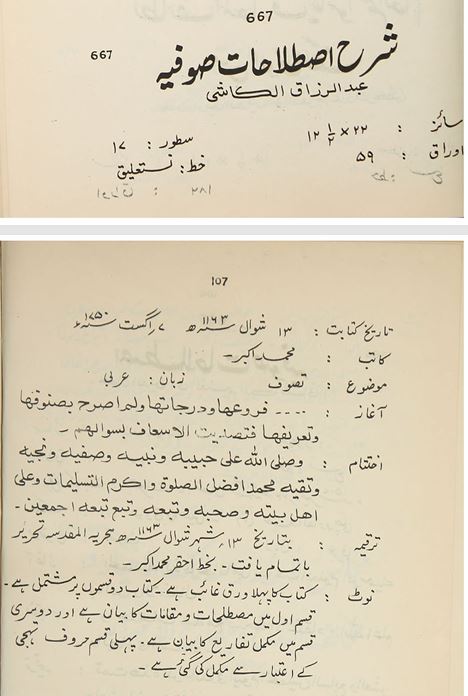 667
667
شرح اصطلاحات صوفیہ
عبدالرزاق الکاشی
سائز : ۲۲ × ۱۲ ½
سطور : ۱۷
اوراق : ۵۹
خط : نستعلیق
107
تاریخ کتابت : ۱۳ شوال ۱۱۶۳ھ ۷ اگست ۱۷۵۰ء
کاتب : محمد اکبر۔
موضوع : تصوف زبان : عربی
آغاز : .... فروعها ودرجاتها ولما صرح بصنوفها
وتعريفها فتصديت الاسعاف بسوالهم ۔
اختتام : وصلى الله على حبيبه ونبيه وصفيه ونجيه
وتقيه محمد افضل الصلوة واكرم التسليمات وعلى
اهل بيته وصحبه وتبعه وتبع تبعه اجمعين ۔
ترقیمہ : بتاریخ ۱۳ شہر شوال ۱۱۶۳ھ ہجریہ المقدسہ تحریر
باتمام یافت ۔ بخط احقر محمد اکبر۔
نوٹ : کتاب کا پہلا ورق غائب ہے۔ کتاب دو قسموں پر مشتمل ہے۔
قسم اول میں مصطلحات و مقامات کا بیان ہے اور دوسری
قسم میں مکمل تفاریع کا بیان ہے۔ پہلی قسم حروف تہجی
کے اعتبار سے مکمل کی گئی ہے ۔